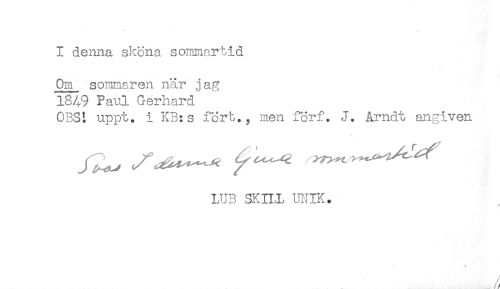 I denna sköna sommartid
Om sommaren när jag
1849 Paul Gerhard
OBS! uppt. i KB:s fört., men förf. J. Arndt angiven
Svas I denna ljuva sommartid
LUB SKILL UNIK.